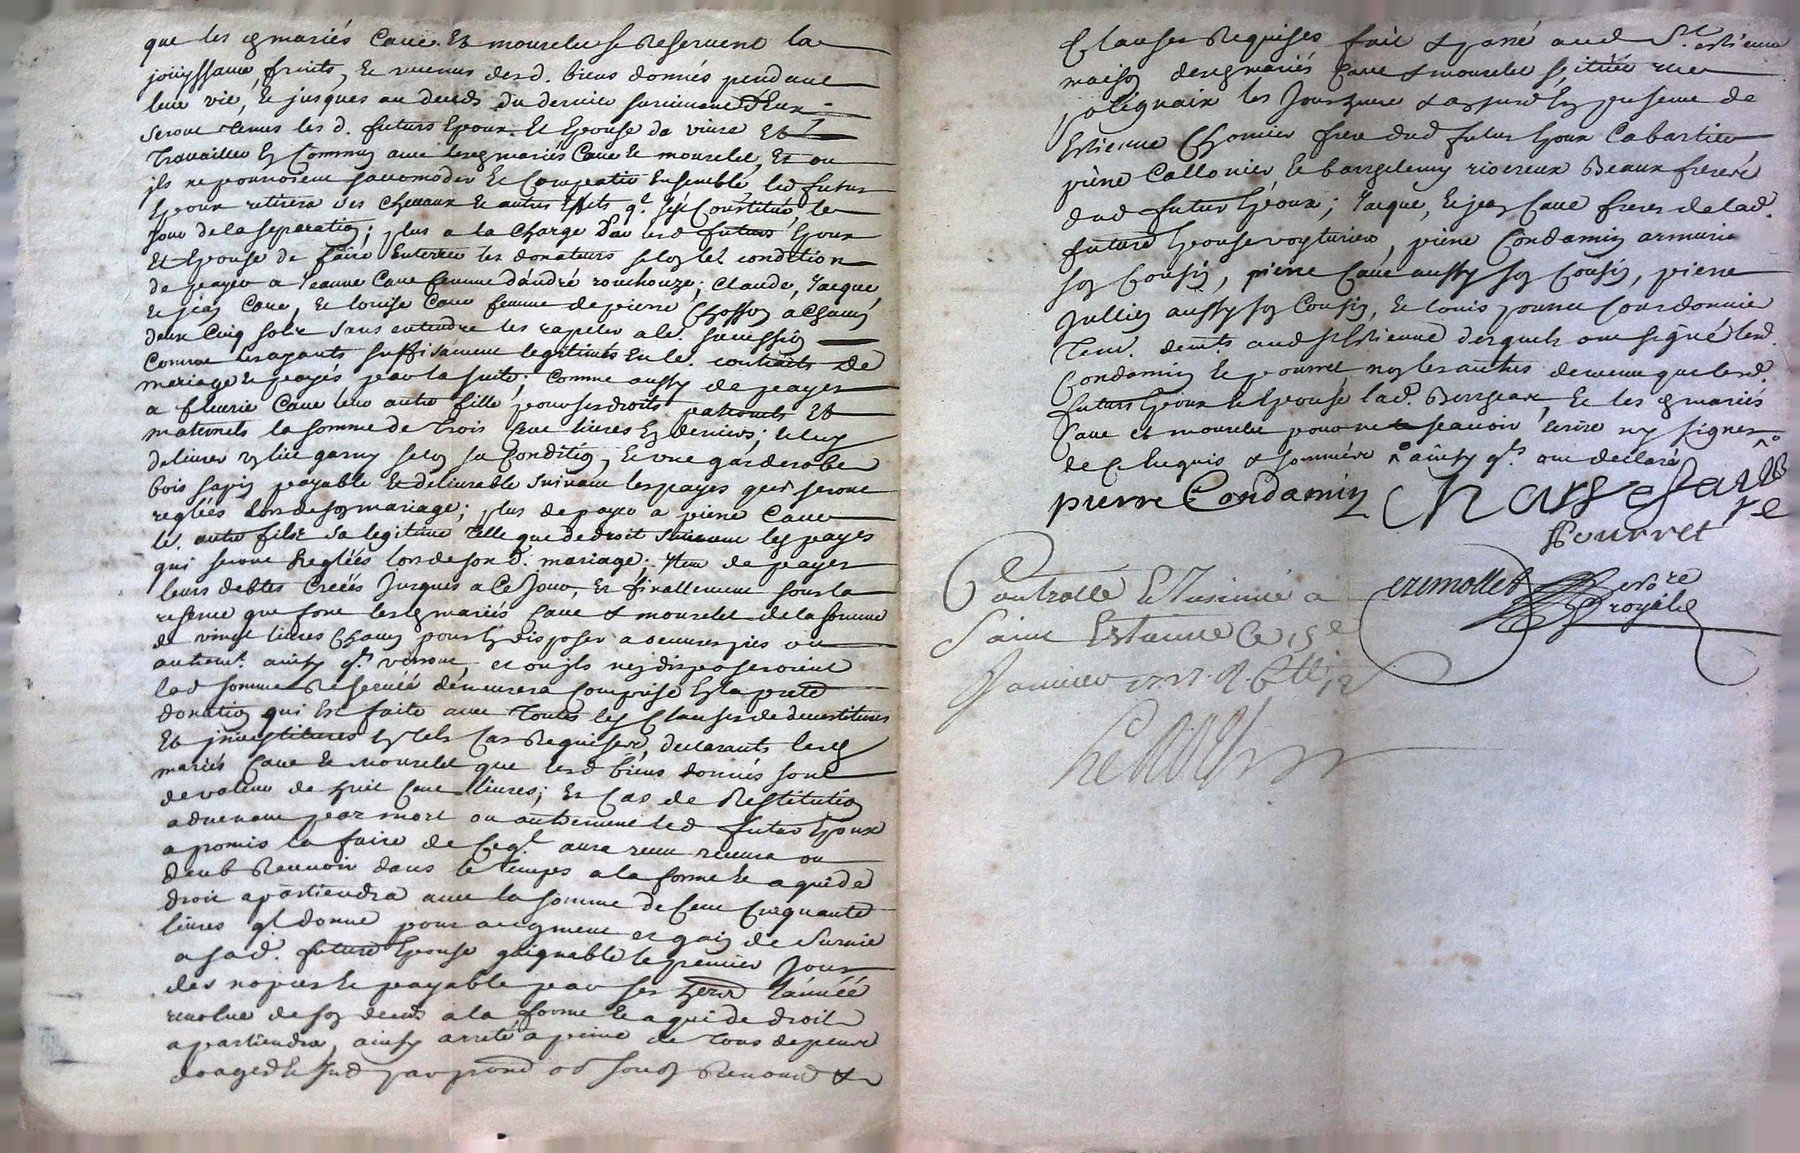 que les gmariés Caue. Et mourelet se Reseruent la
jouyssance, fruits, Et reuenus desd. biens donnés pendant
leur vie, Et jusques au deceds du dernier suruiuant d'Eux
seront tenus les d. futurs Epoux. Et Epouse de viure Et
Trauailler En Commun auec lesgmariés Caue Et mourelet, Et ou
ils ne pourroient saccomoder Et Compatir Ensemble, led futur
Epoux retirera ses cheuaux Et autres Effets q'l sest Constitué, le
Jour de la separation; plus a la Charge Par lesd futurs Epoux
Et Epouse de faire Enterrer les donateurs selon les condition
de payer a Jeanne Caue femme d'andré rouchouze; Claude, Jacque,
Et jean Caue, Et louise Caue femme de pierre Chosson a Chacun
deux Cinq sols sans entendre les rapeler a le. succession
Comme les ayants suffisament legitimés En le. contrats de
mariage Et payés par la suite; Comme aussy de payer
a fleurie Caue leur autre fille pour ses droits paternels Et
maternels la somme de Trois Cent liures En deniers; Et luy
deliurer un lit garny selon sa Condition, Et une garderobe
bois sapin payable Et deliurable suiuant les payes qui seront
reglées lors de son mariage; plus de payer a pierre Caue
le. autre fils sa legitime telle que de droit suiuant les payes
qui seront Reglées lors de son d. mariage; Item de payer
leurs debtes Creées Jusques a ce Jour, Et finallement sous la
reserue que font lesgmariés Caue & mourelet de la somme
de vingt liures Chacun pour En disposer a oeuures pies ou
autremt. ainsy q'ls verront, et ou ils n'en disposeroient
lad somme Reseruée demeurera comprise En la pnte
donation qui Est faite auec Toutes les Clauses de deuestitures
Et jnuestitures En tels Cas Requises, declarants lesg
mariés Caue Et Mourelet que lesd biens donnés sont
de valeur de huit Cent liures; Et Cas de Restitution
aduenant par mort ou autrement led futur Epoux
a promis la faire de Ce q'l aura receu receura ou
deub Receuoir dans le temps a la forme Et a qui de
droit apartiendra auec la somme de Cent Cinquante
liures q'l donne pour augment et gain de Suruie
a sad. future Epouse gaignable le premier Jour
des nopces Et payable par ses hers l'année
reuolue de son deces a la forme Et a qui de droit
apartiendra, ainsy arreté a peine de Tous depens
Clauses Requises fait & passé aud St. estienne
maison desgmariés Caue & mourelet scituée rue
polignais les Jour
Estienne Chomier frere dud futur Epoux Cabartier
pierre Callonier, Et barthelemy riuereux Beaux freres
dud futur Epoux; Jacque, Et jean Caue freres de lad.
future Epouse voyturiers, pierre Condamin armurier
son Cousin, pierre Caue aussy son Cousin, pierre
Jullien aussy son Cousin, Et louis pourret Courdonnier
Tem. demts. aud St Estienne desquels ont signé led.
Condamin Et pourret, non les autres de mesme que lesd.
futurs Epoux Et Epouse lad. Berjeat, Et les gmariés
Caue et mourelet pour ne scauoir Ecrire ny signer
de Ce Enquis & sommés ainsy q'ls ont declaré
pierre Condamin
Pourret
Cremollet
Nore
Royal
Controllé Et Insinué a
Saint Estienne Ce 15e
Januier